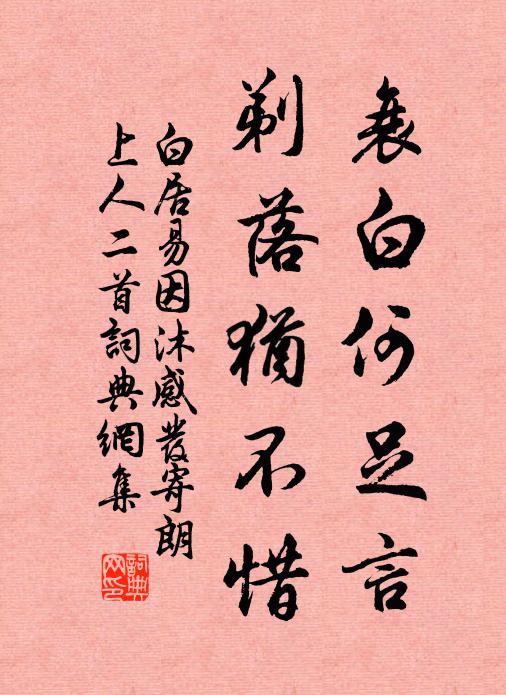 衰白何足言
剃落猶不惜
白居易因沐感發寄朗
上人二首詞典網集
詞典網印